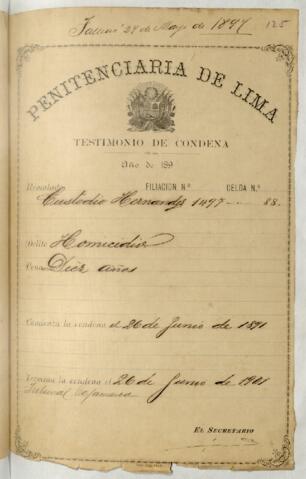 28 de Mayo de 1897 125
PENITENCIARIA DE LIMA
TESTIMONIO DE CONDENA
Año de 189
Rematado FILIACION N.º CELDA N.º
Custodio Hernandez 1497 - 88.
Delito Homicidio
Pena Diez años
Comienza la condena el 26 de Junio de 1891
Termina la condena el 26 de Junio de 1901
Tribunal Cajamarca
EL SECRETARIO